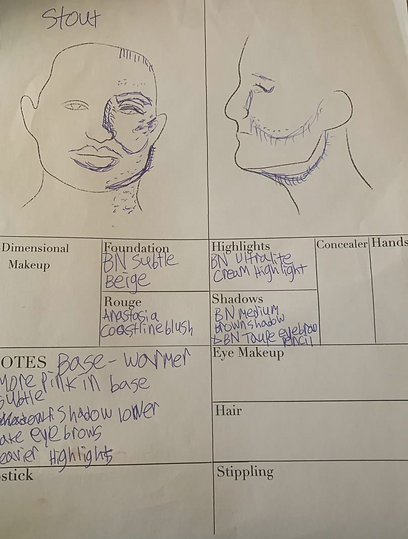 Stout
Dimensional
Makeup
Foundation
BN Subtle
Beige
Highlights
BN Ultralite
Cream Highlight
Concealer
Hands
Rouge
Anastasia
Coastline blush
Shadows
BN medium
brown shadow
BN Taupe eyebrow
pencil
OTES Base - warmer
more pink in base
subtle
Shadow lower
ake eyebrows
eavier Highlights
Eye Makeup
Hair
pstick
Stippling